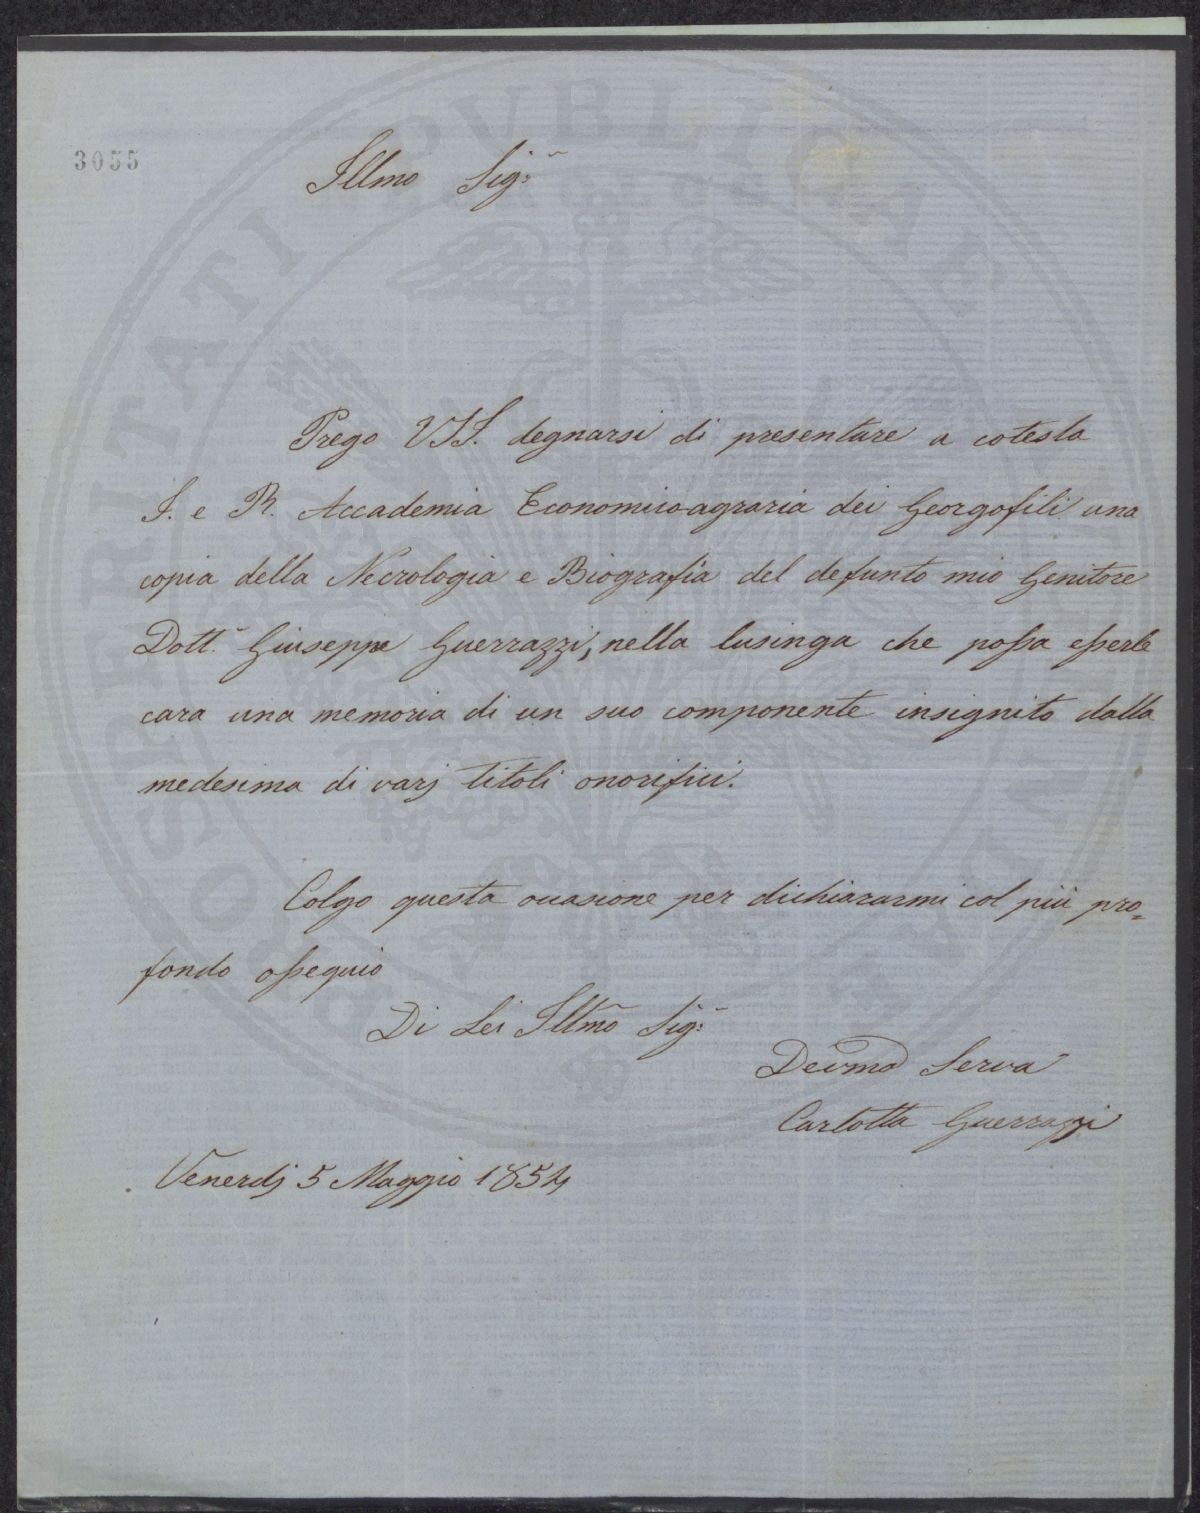 PROSPERITATI PVBLICAE AVGENDAE
3055
Illmo Sig.r
Prego VSI. degnarsi di presentare a cotesta
I. e R. Accademia Economico-agraria dei Georgofili una
copia della Necrologia e Biografia del defunto mio Genitore
Dott.r Giuseppe Guerrazzi, nella lusinga che possa esserle
cara una memoria di un suo componente insignito dalla
medesima di varj titoli onorifici.
Colgo questa occasione per dichiararmi col più pro=
fondo ossequio
Di Lei Illmo Sig.r
Devma Serva
Carlotta Guerrazzi
Venerdj 5 Maggio 1854